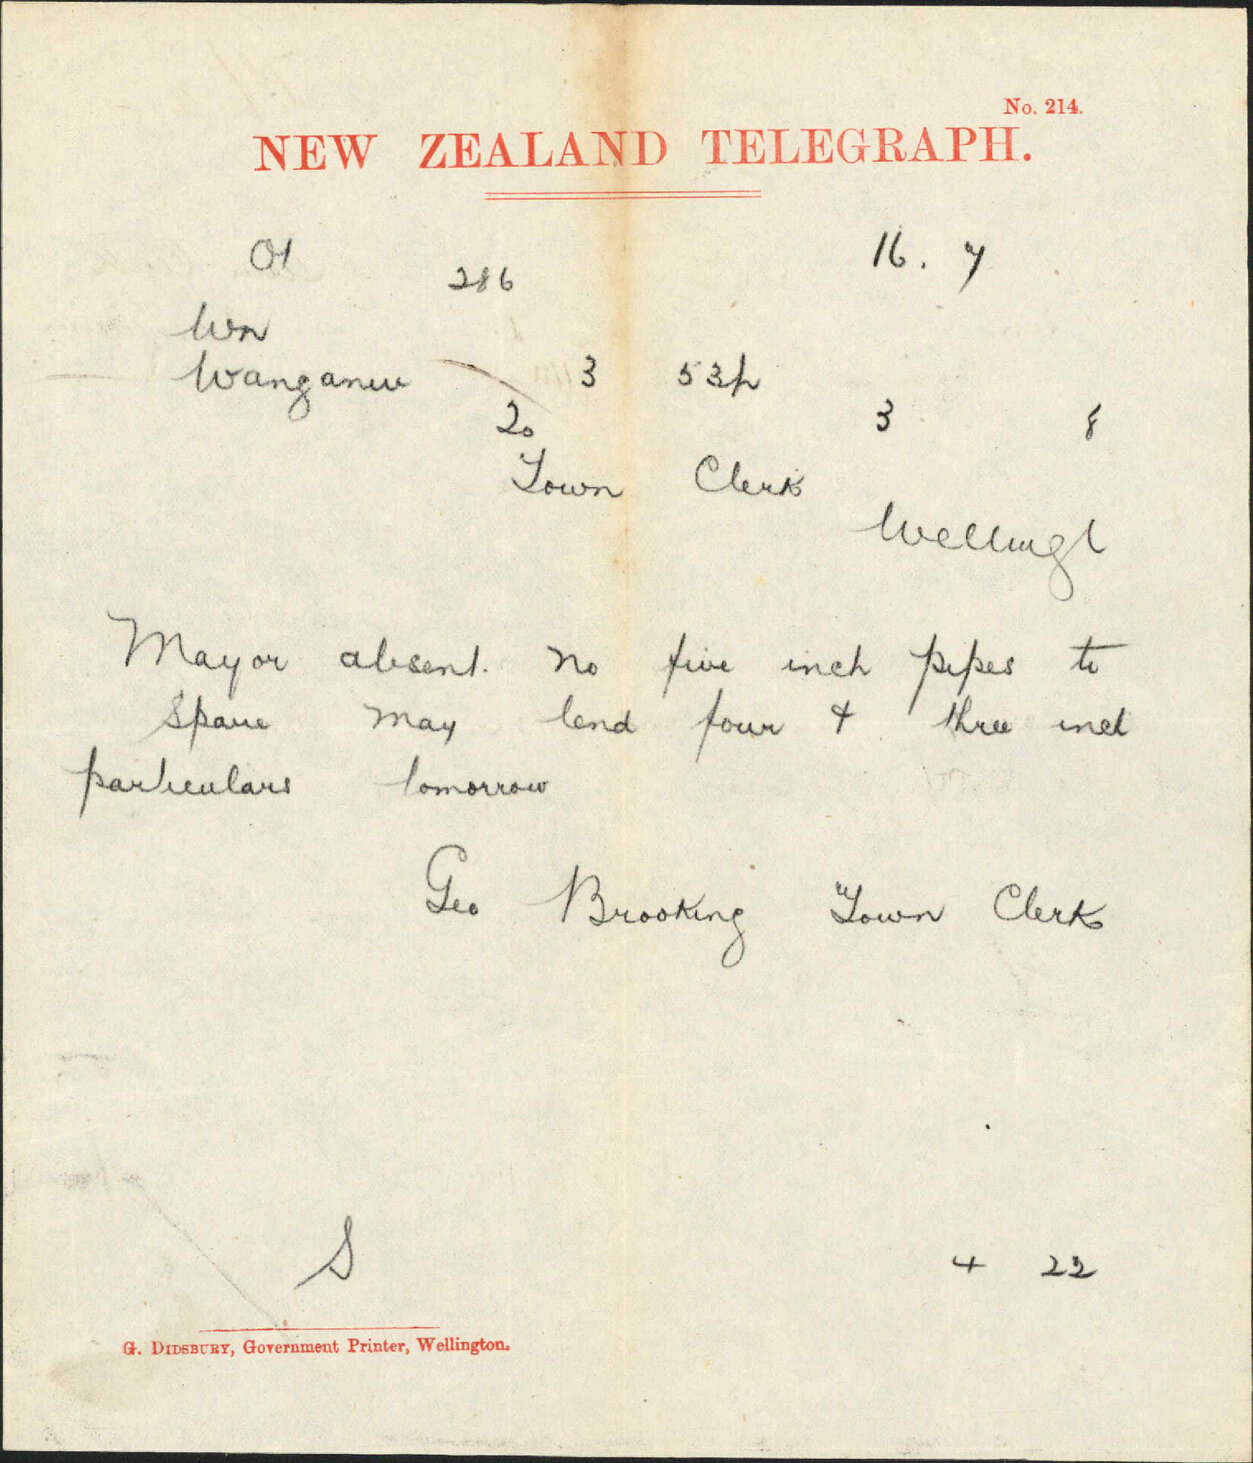 No. 214.
NEW ZEALAND TELEGRAPH.
16. 7
286
Wn
Wanganui 3 53p
20 3 8
Town Clerk
Wellingt
Mayor absent. No five inch pipes to
spare may lend four & three inch
particulars tomorrow
Geo Brooking Town Clerk
S 4 22
G. DIDSBURY, Government Printer, Wellington.